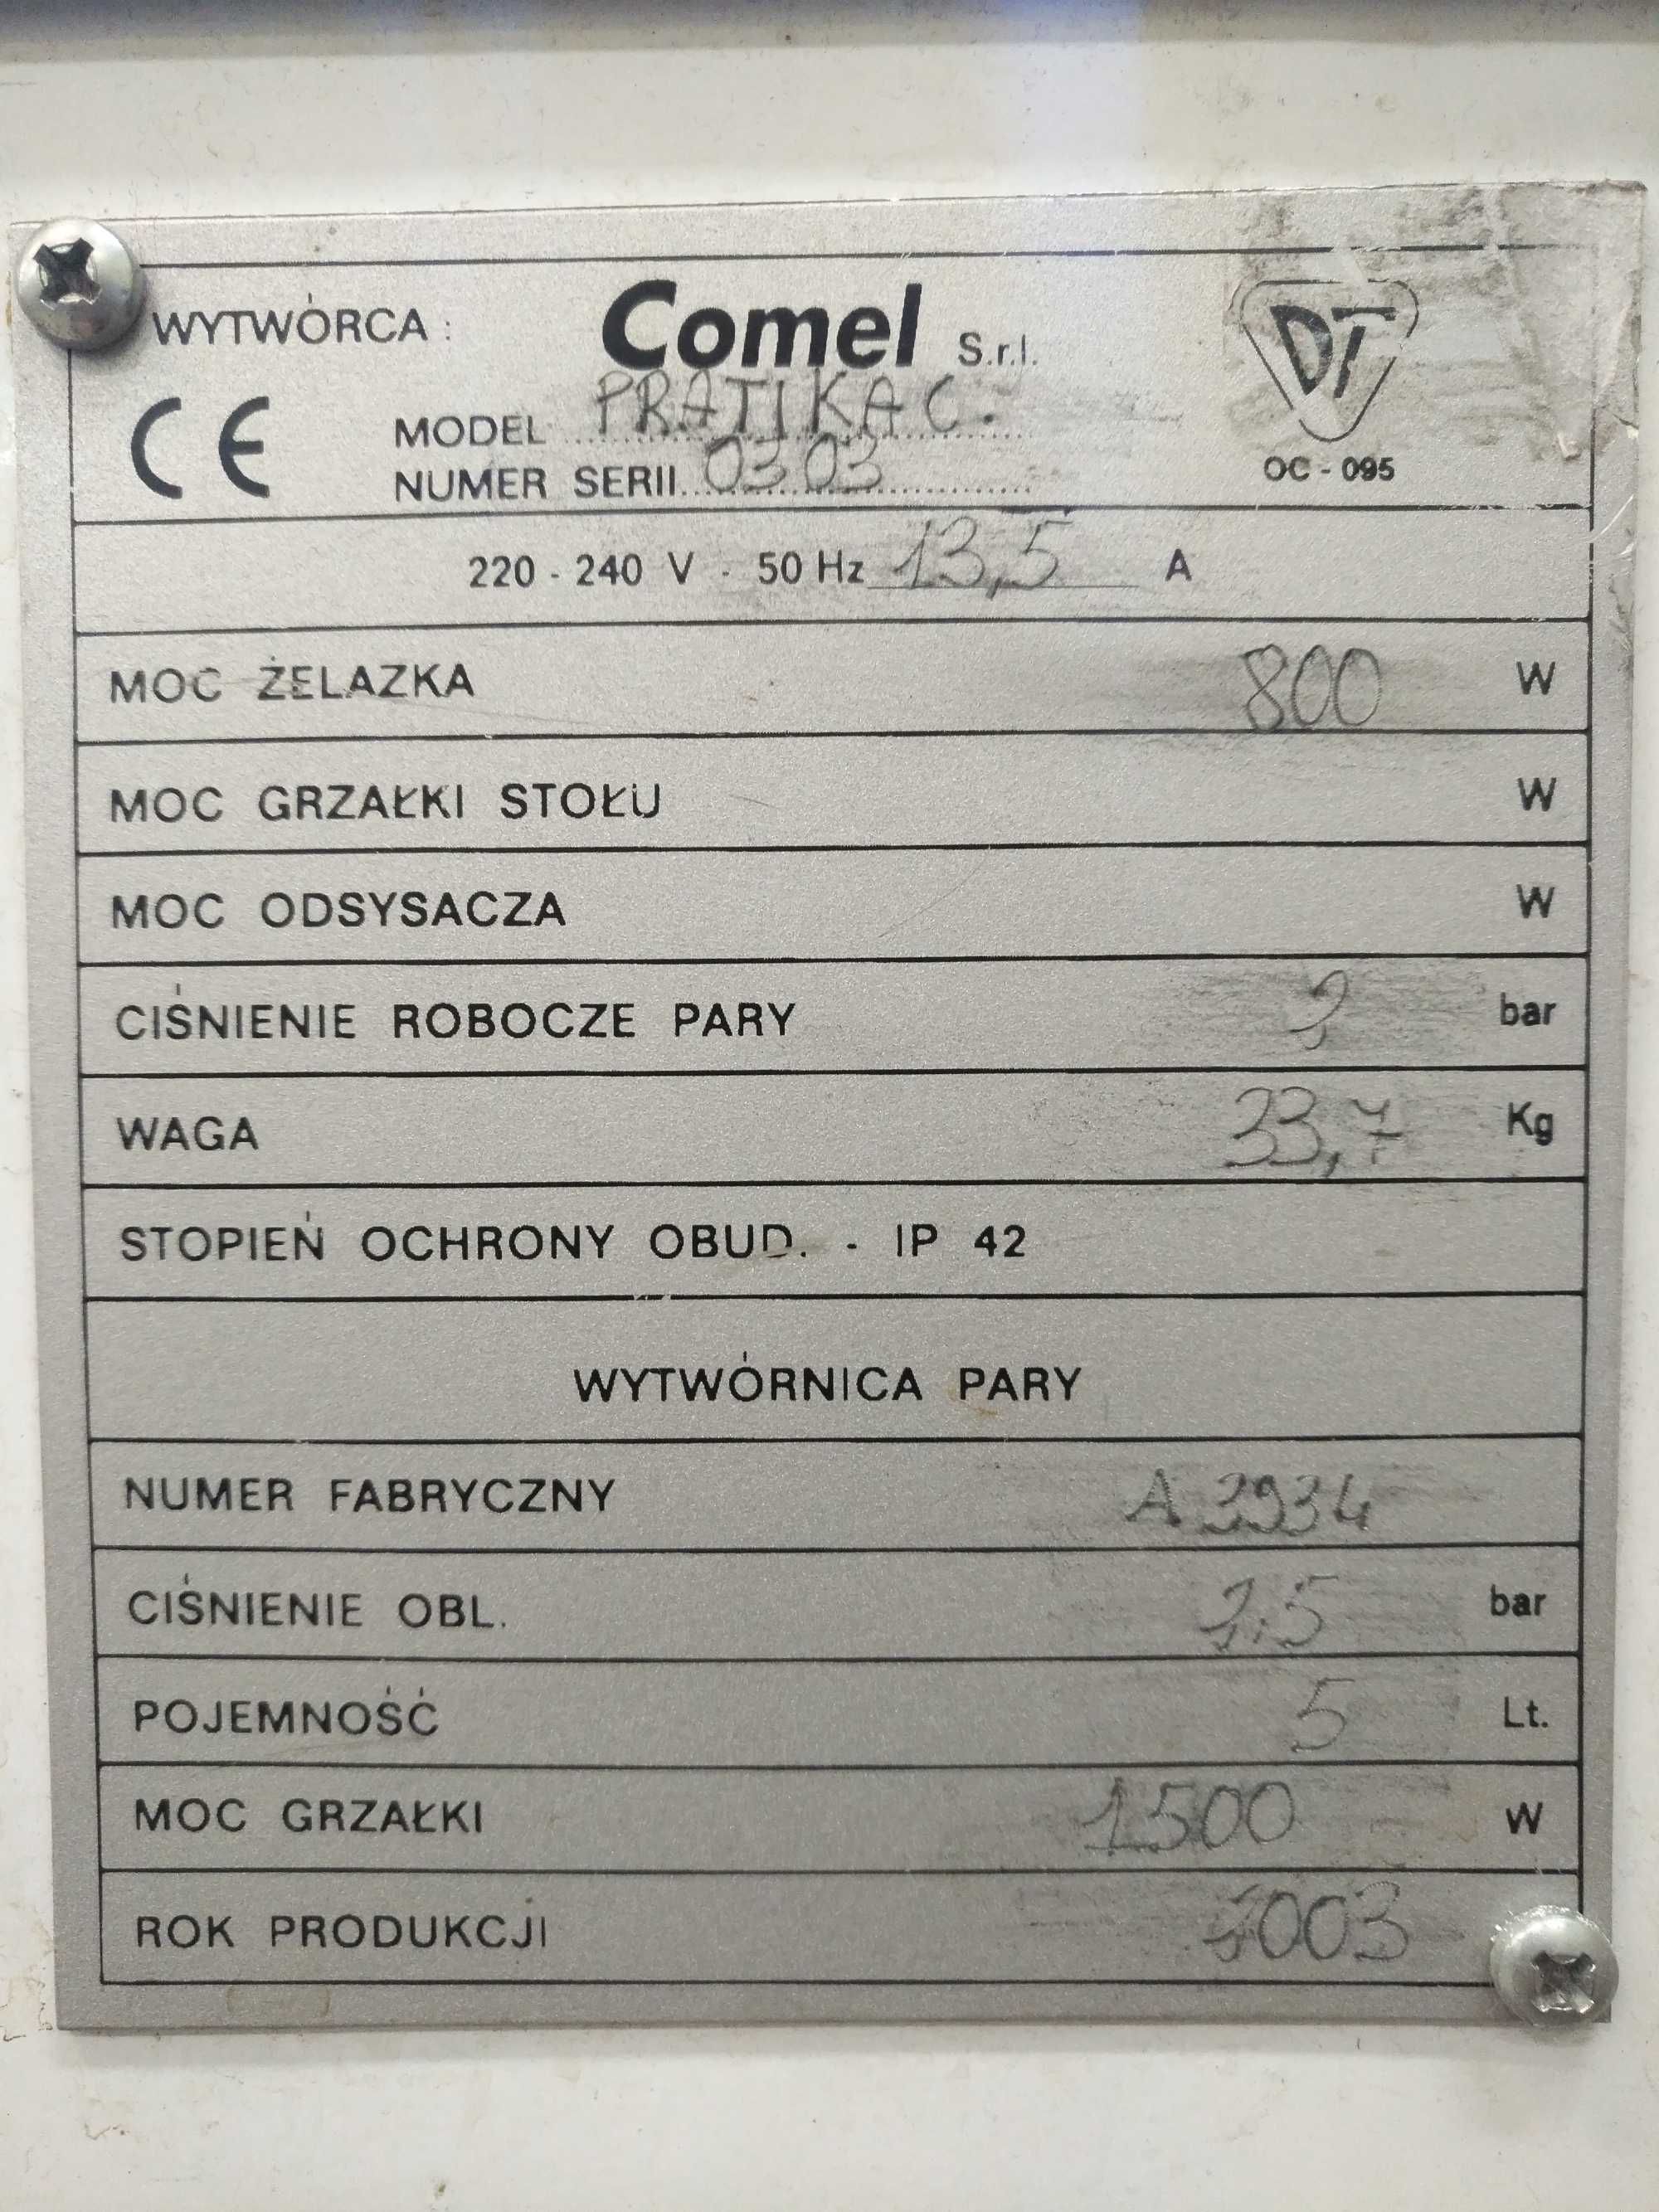 WYTWÓRCA : Comel S.r.l.
DT
CE MODEL PRATIKA C.
NUMER SERII 0303
OC - 095
220 - 240 V - 50 Hz 13,5 A
MOC ŻELAZKA 800 W
MOC GRZAŁKI STOŁU W
MOC ODSYSACZA W
CIŚNIENIE ROBOCZE PARY bar
WAGA 33,7 Kg
STOPIEŃ OCHRONY OBUD. - IP 42
WYTWÓRNICA PARY
NUMER FABRYCZNY
CIŚNIENIE OBL. bar
POJEMNOŚĆ 5 Lt.
MOC GRZAŁKI 1500 W
ROK PRODUKCJI